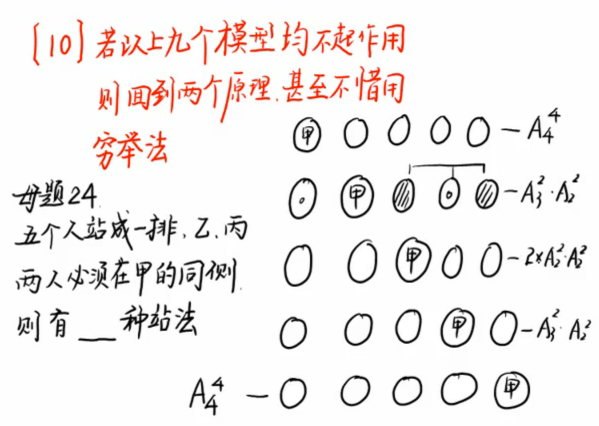 [10] 若以上九个模型均不起作用
则回到两个原理.甚至不惜用
穷举法
母题24.
五个人站成一排,乙、丙
两人必须在甲的同侧
则有 ___ 种站法
甲 — A₄⁴
甲 — A₃²·A₂²
甲 — 2×A₂²·A₂²
甲 — A₃²·A₂²
A₄⁴ — 甲